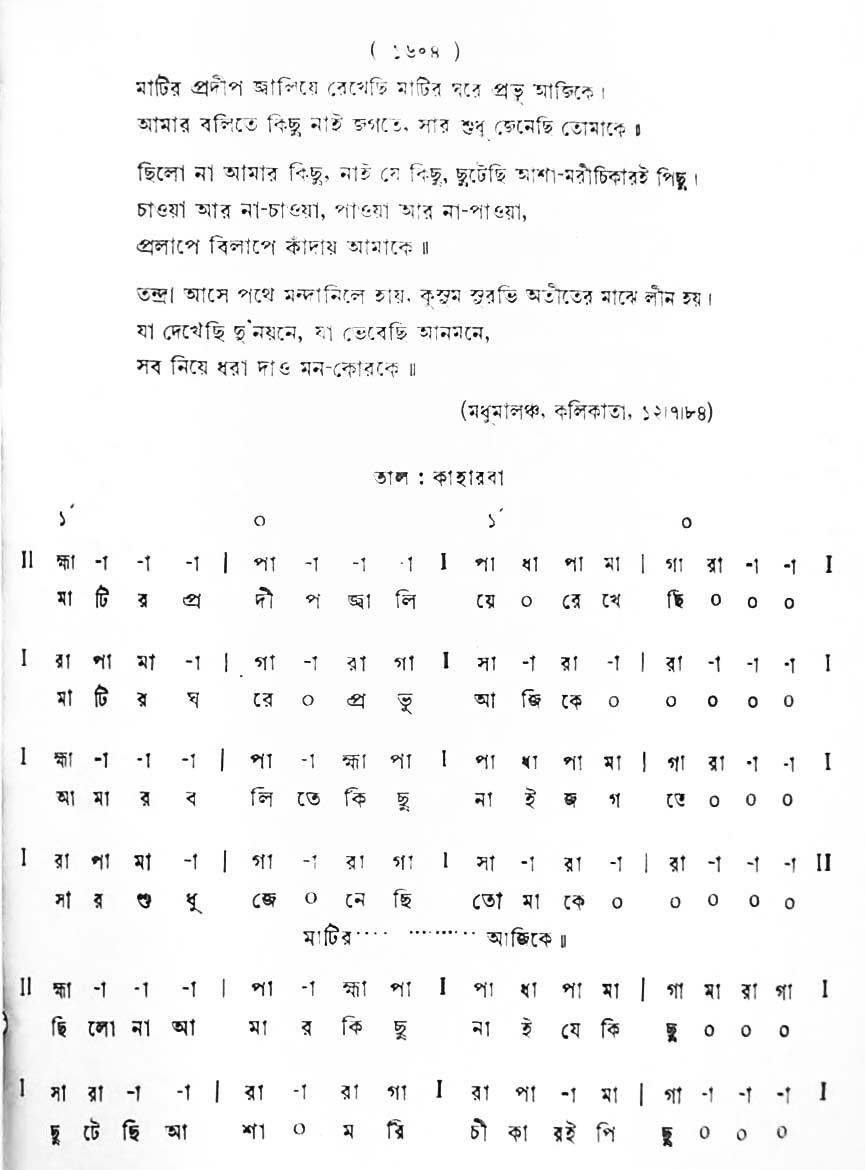 ( ১৬০৪ )
মাটির প্রদীপ জ্বালিয়ে রেখেছি মাটির ঘরে প্রভু আজিকে।
আমার বলিতে কিছু নাই জগতে, সার শুধু জেনেছি তোমাকে॥
ছিলো না আমার কিছু, নাই যে কিছু, ছুটেছি আশা-মরীচিকারই পিছু।
চাওয়া আর না-চাওয়া, পাওয়া আর না-পাওয়া,
প্রলাপে বিলাপে কাঁদায় আমাকে॥
তন্দ্রা আসে পথে মন্দানিলে হায়, কুসুম সুরভি অতীতের মাঝে লীন হয়।
যা দেখেছি দু'নয়নে, যা ভেবেছি আনমনে,
সব নিয়ে ধরা দাও মন-কোরকে॥
(মধুমালঞ্চ, কলিকাতা, ১২।৭।৮৪)
তাল : কাহারবা
১´ ০ ১´ ০
II হ্মা -া -া -া | পা -া -া -া I পা ধা পা মা | গা রা -া -া I
মা টি র প্র দী প জ্বা লি য়ে ০ রে খে ছি ০ ০ ০
I রা পা মা -া | গা -া রা গা I সা -া রা -া | রা -া -া -া I
মা টি র ঘ রে ০ প্র ভু আ জি কে ০ ০ ০ ০ ০
I হ্মা -া -া -া | পা -া হ্মা পা I পা ধা পা মা | গা রা -া -া I
আ মা র ব লি তে কি ছু না ই জ গ তে ০ ০ ০
I রা পা মা -া | গা -া রা গা I সা -া রা -া | রা -া -া -া II
সা র শু ধু জে ০ নে ছি তো মা কে ০ ০ ০ ০ ০
মাটির···· ·········· আজিকে॥
II হ্মা -া -া -া | পা -া হ্মা পা I পা ধা পা মা | গা মা রা গা I
ছি লো না আ মা র কি ছু না ই যে কি ছু ০ ০ ০
I সা রা -া -া | রা -া রা গা I রা পা -া মা | গা -া -া -া I
ছু টে ছি আ শা ০ ম রি চী কা রই পি ছু ০ ০ ০